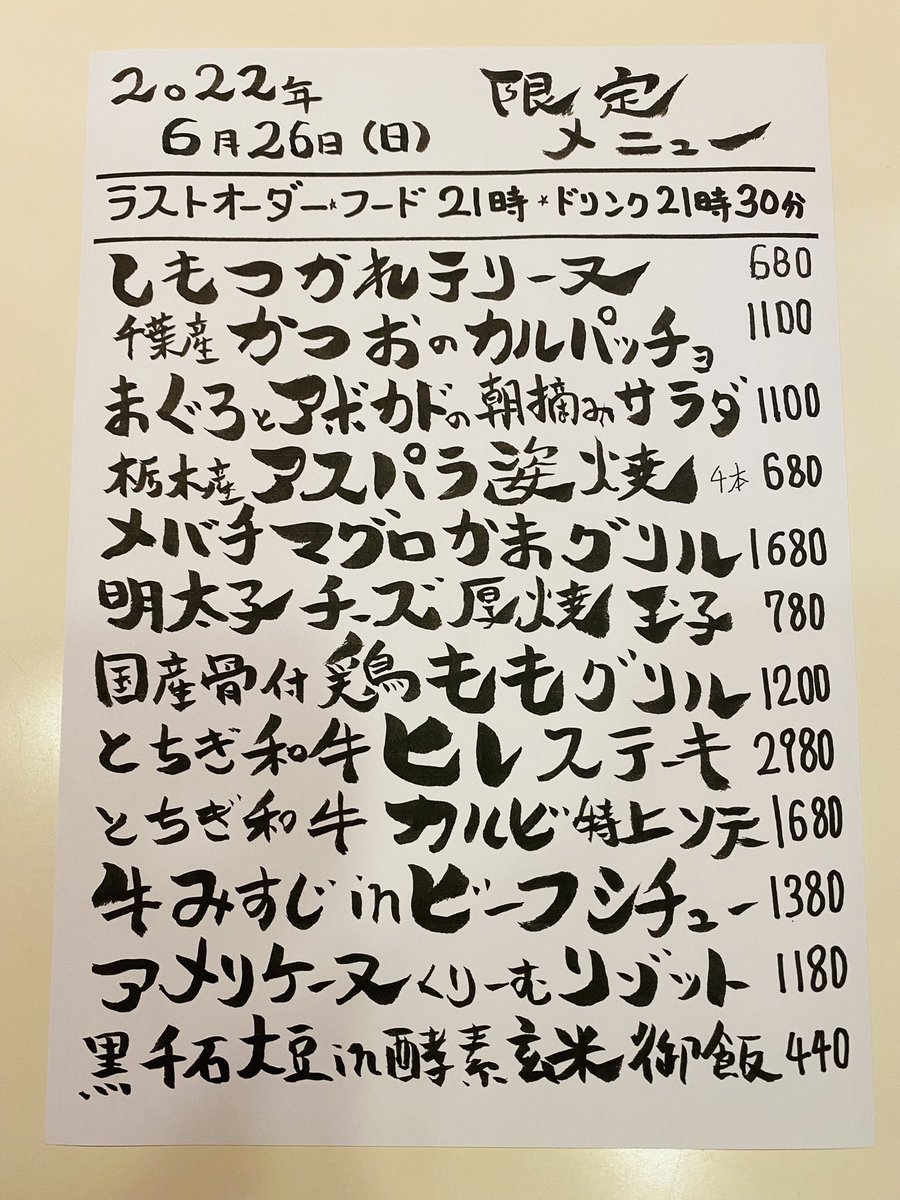 2022年
6月26日(日)
限定
メニュー
ラストオーダー★フード 21時 ★ドリンク21時30分
しもつかれテリーヌ 680
千葉産 かつおのカルパッチョ 1100
まぐろとアボカドの朝摘みサラダ 1100
栃木産 アスパラ姿焼 4本 680
メバチマグロかまグリル 1680
明太子チーズ厚焼玉子 780
国産骨付鶏ももグリル 1200
とちぎ和牛ヒレステーキ 2980
とちぎ和牛 カルビ特上ソテー 1680
牛みすじinビーフシチュー 1380
アメリケーヌくりーむリゾット 1180
黒千石大豆in酵素玄米御飯 440